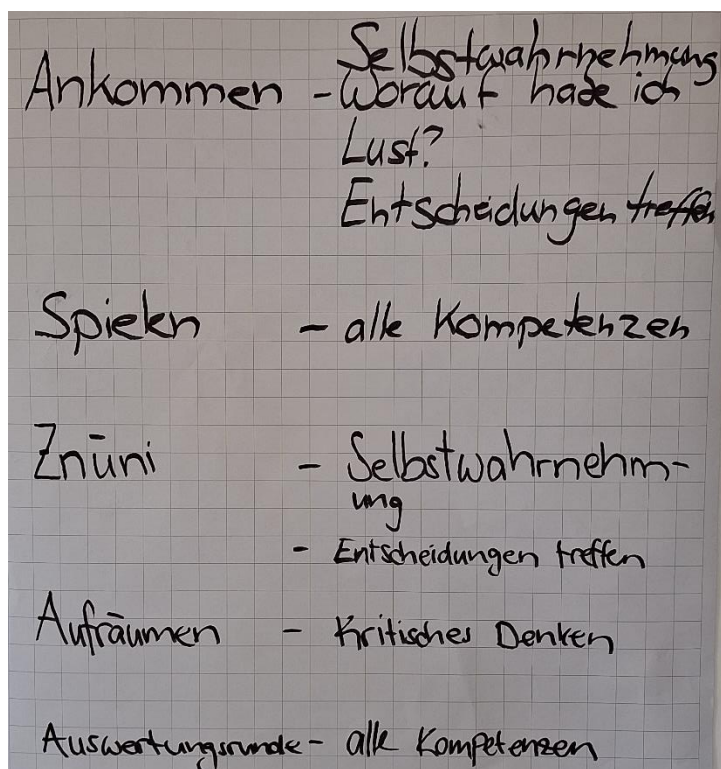 Selbstwahrnehmung
Ankommen - Worauf habe ich
Lust?
Entscheidungen treffen
Spielen - alle Kompetenzen
Znüni - Selbstwahrnehm-
ung
- Entscheidungen treffen
Aufräumen - Kritisches Denken
Auswertungsrunde - alle Kompetenzen